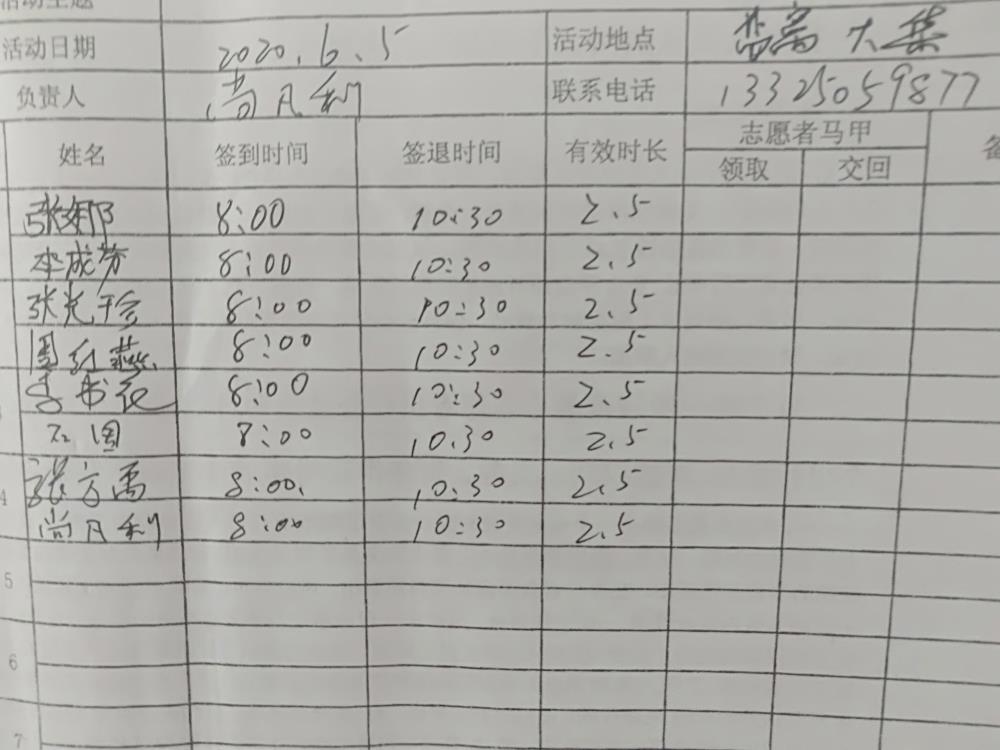 活动主题
活动日期 2020.6.5 活动地点 大集
负责人 尚凡利 联系电话 13325059877
姓名 签到时间 签退时间 有效时长 志愿者马甲 备
领取 交回
张娜 8:00 10:30 2.5
李成芳 8:00 10:30 2.5
张光珍 8:00 10:30 2.5
周红燕 8:00 10:30 2.5
李书记 8:00 10:30 2.5
石围 8:00 10.30 2.5
4 张方禹 8:00. 10:30 2.5
尚凡利 8:00 10:30 2.5
5
6
7